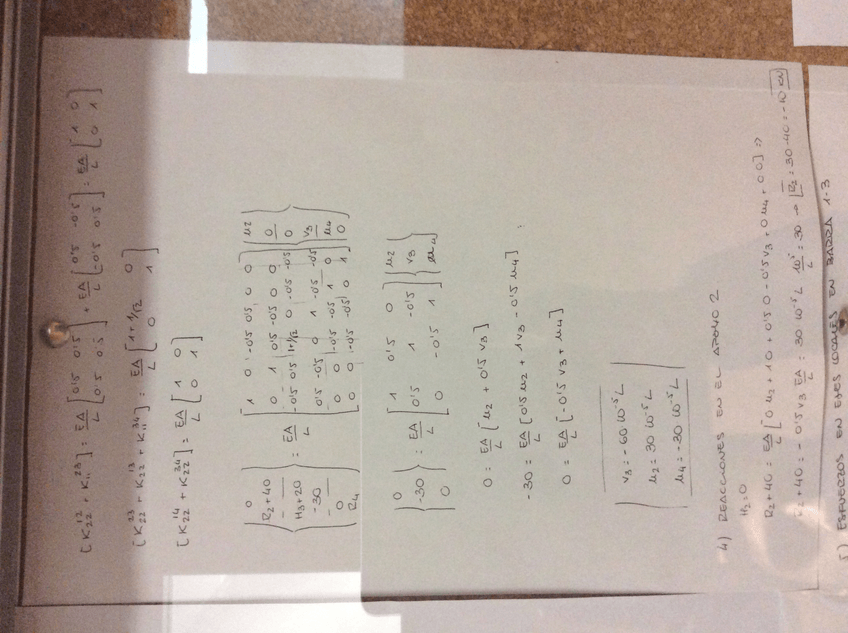 [K₂₂¹² + K₁₁²³] = EA/L [0'5 0'5; 0'5 0'5] + EA/L [0'5 -0'5; -0'5 0'5] = EA/L [1 0; 0 1]
[K₂₂²³ + K₂₂¹³ + K₁₁³⁴] = EA/L [1+1/√2 0; 0 1]
[K₂₂¹⁴ + K₂₂³⁴] = EA/L [1 0; 0 1]
{0; R₂+40; H₃+20; -30; 0; R₄} = EA/L [1 0 -0'5 0'5 0 0; 0 1 0'5 -0'5 0 0; -0'5 0'5 1+1/√2 0 -0'5 -0'5; 0'5 -0'5 0 1 -0'5 -0'5; 0 0 -0'5 -0'5 1 0; 0 0 -0'5 -0'5 0 1] {μ₂; 0; 0; v₃; μ₄; 0}
{0; -30; 0} = EA/L [1 0'5 0; 0'5 1 -0'5; 0 -0'5 1] {μ₂; v₃; μ₄}
0 = EA/L [μ₂ + 0'5 v₃]
-30 = EA/L [0'5 μ₂ + 1 v₃ - 0'5 μ₄] ;
0 = EA/L [-0'5 v₃ + μ₄]
v₃ = -60 10⁻⁵ L
μ₂ = 30 10⁻⁵ L
μ₄ = -30 10⁻⁵ L
4) REACCIONES EN EL APOYO 2
H₂ = 0
R₂ + 40 = EA/L [0 μ₂ + 1 0 + 0'5 0 - 0'5 v₃ + 0 μ₄ + 0 0] ⇒
R₂ + 40 = - 0'5 v₃ EA/L = 30 10⁻⁵ L 10⁵/L = 30 → R₂ = 30-40 = -10 KN
5) ESFUERZOS EN EJES LOCALES EN BARRA 1-3